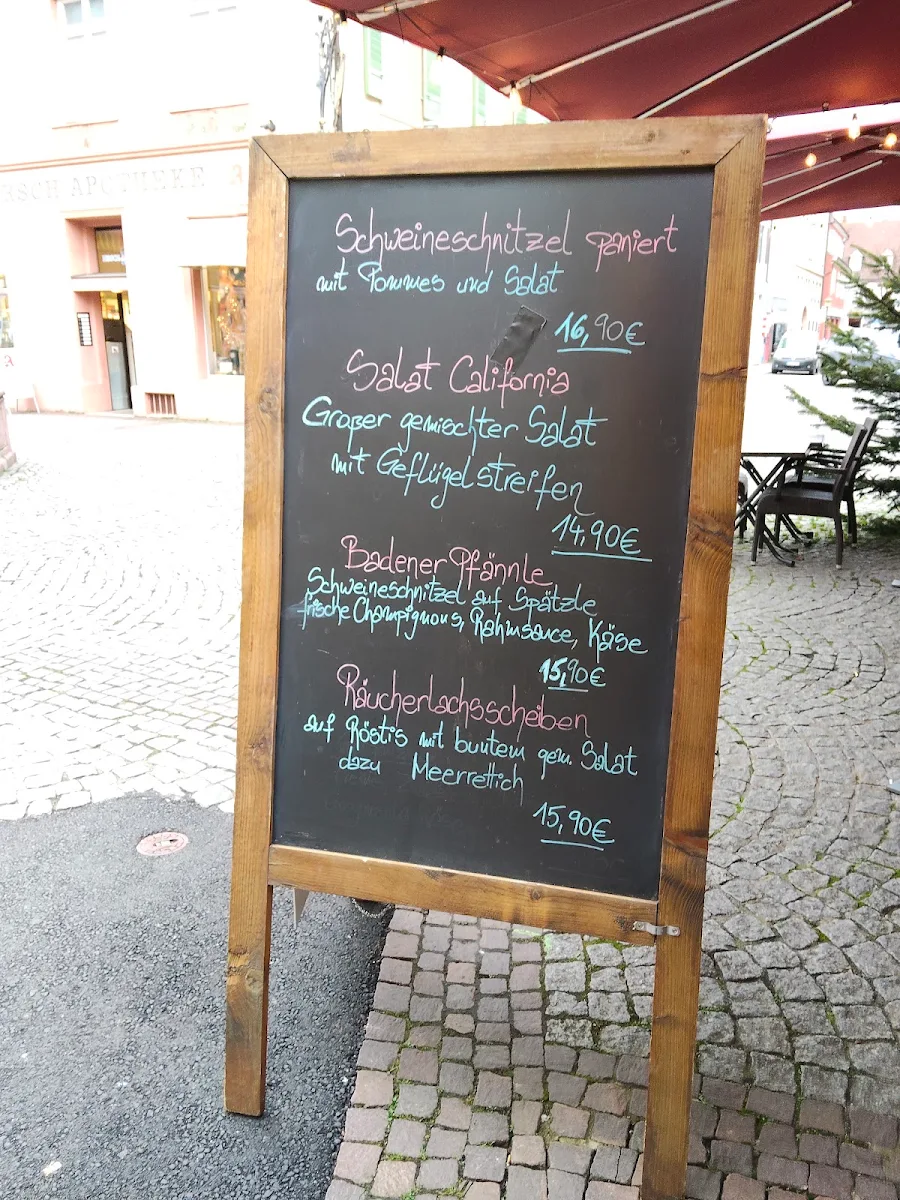 RSCH APOTHEKE
Schweineschnitzel paniert
mit Pommes und Salat
16,90€
Salat California
Großer gemischter Salat
mit Geflügelstreifen
14,90€
Badener Pfännle
Schweineschnitzel auf Spätzle
frische Champignons, Rahmsauce, Käse
15,90€
Räucherlachsscheiben
auf Röstis mit buntem gem. Salat
dazu Meerrettich
15,90€